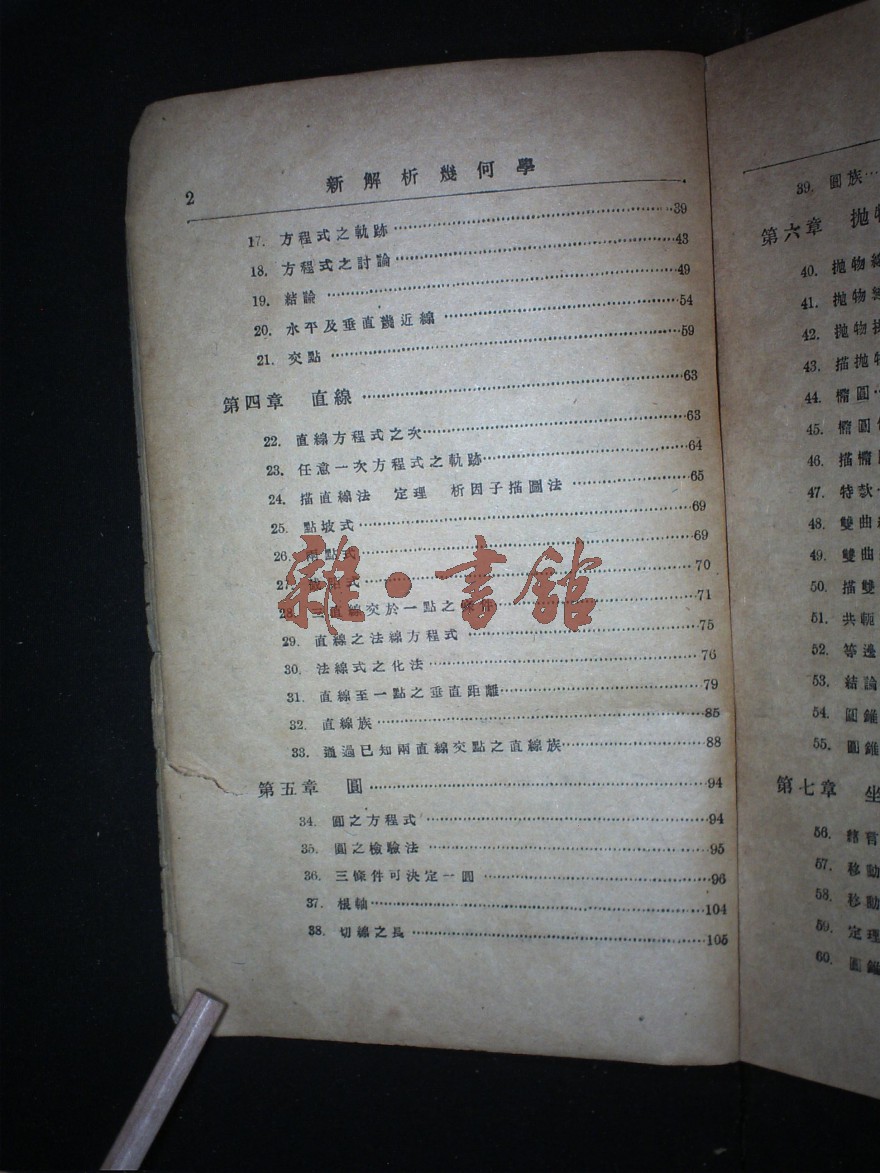 2
新解析幾何學
17. 方程式之軌跡 39
18. 方程式之討論 43
19. 結論 49
20. 水平及垂直漸近線 54
21. 交點 59
第四章 直線 63
22. 直線方程式之次 63
23. 任意一次方程式之軌跡 64
24. 描直線法 定理 析因子描圖法 65
25. 點坡式 69
26. 兩點式 69
27. 式 70
28. 三直線交於一點之條件 71
29. 直線之法線方程式 75
30. 法線式之化法 76
31. 直線至一點之垂直距離 79
32. 直線族 85
33. 通過已知兩直線交點之直線族 88
第五章 圓 94
34. 圓之方程式 94
35. 圓之檢驗法 95
36. 三條件可決定一圓 96
37. 根軸 104
38. 切線之長 105
雜·書館
39. 圓族
第六章 拋物
40. 拋物線
41. 拋物
42. 拋物
43. 描拋物
44. 橢圓
45. 橢圓
46. 描橢
47. 特款
48. 雙曲
49. 雙曲
50. 描雙
51. 共軛
52. 等邊
53. 結論
54. 圓錐
55. 圓錐
第七章 坐
56.
57. 移動
58. 移動
59. 定理
60. 圓錐